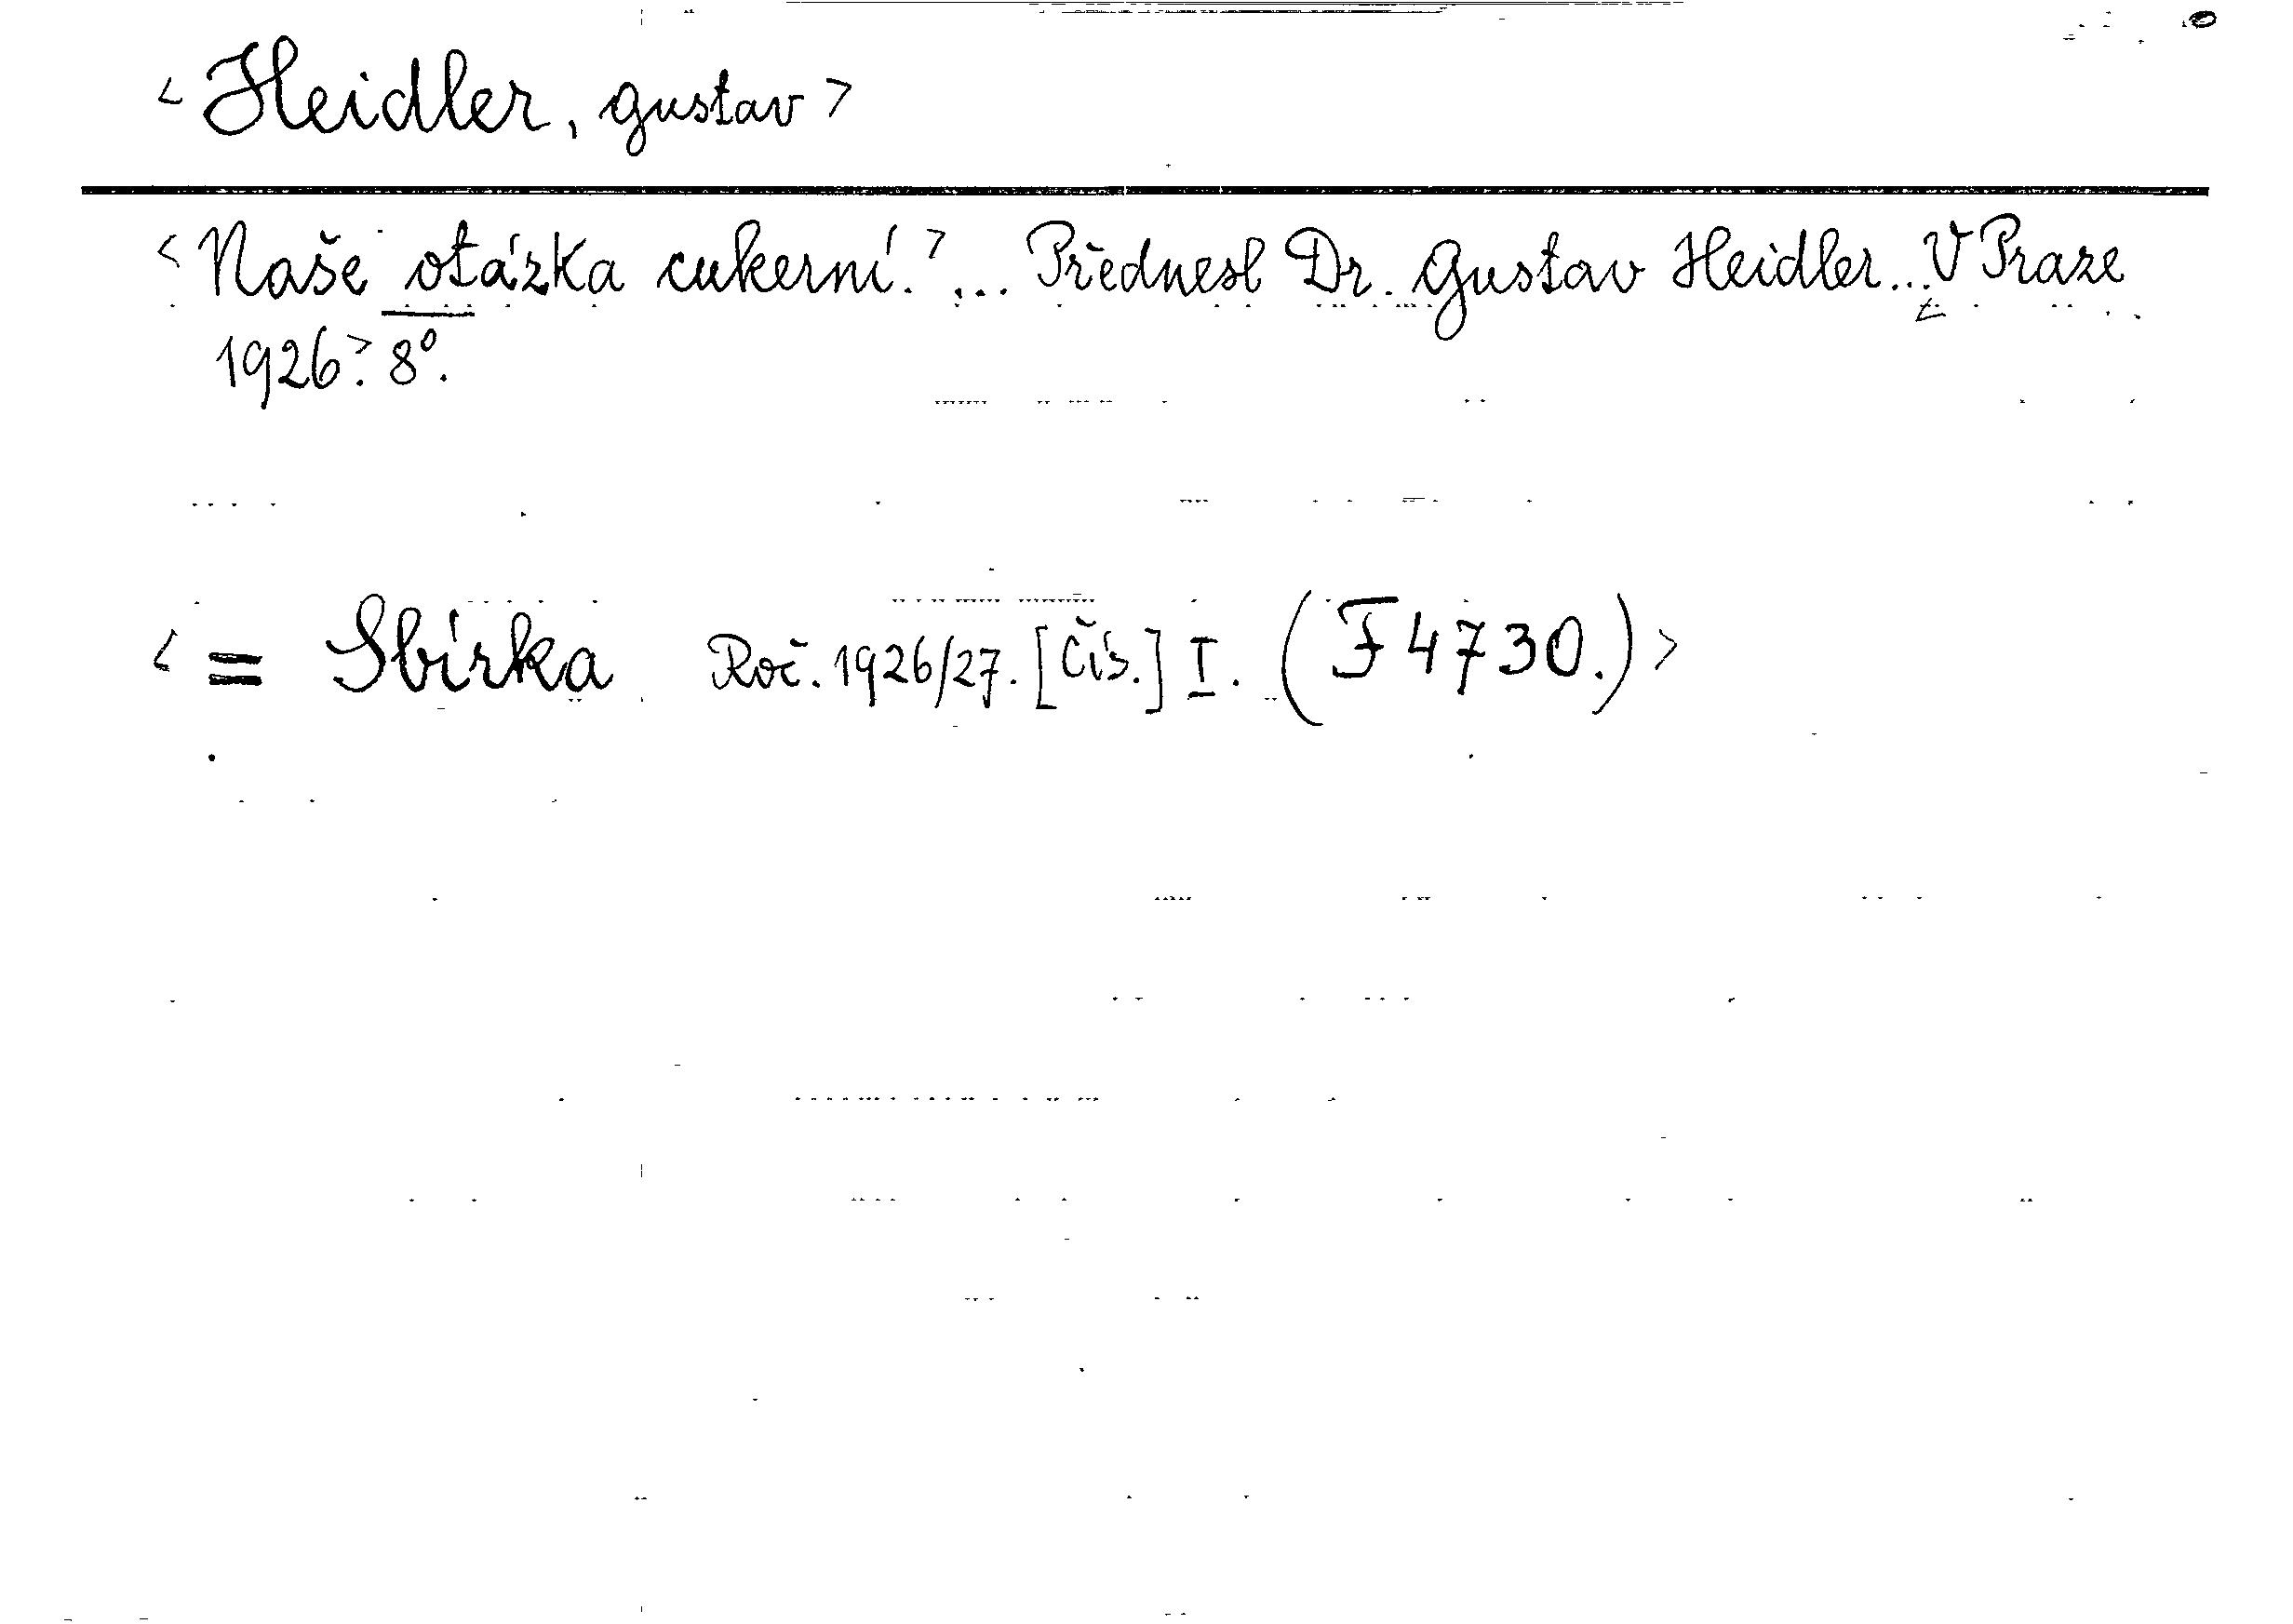 <Heidler, Gustav>
<Naše otázka cukerní.>... Přednesl Dr. Gustav Heidler... <V Praze
1926>. 8°.
<= Sbírka Roč. 1926/27. [Čís.] I. (F 4730.)>